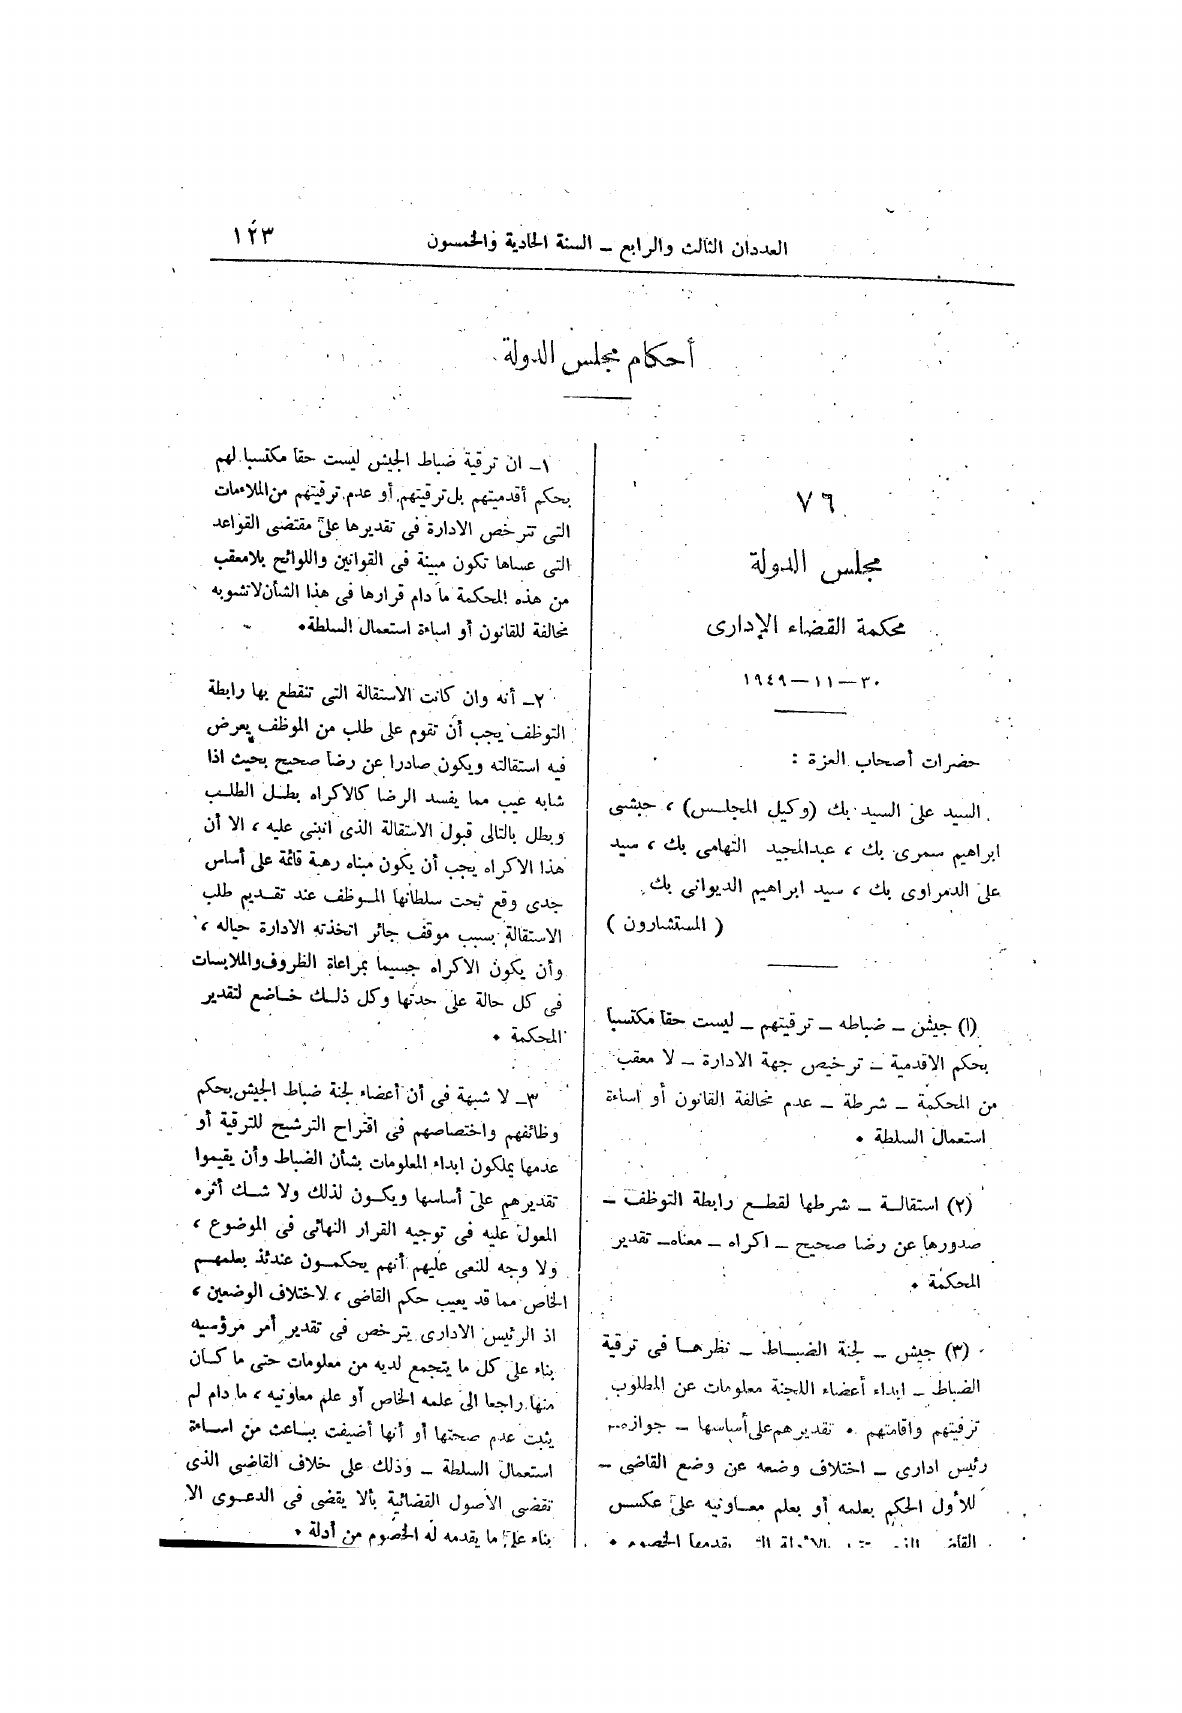 العددان الثالث والرابع – السنة الحادية والخمسون
١٢٣
أحكام مجلس الدولة
٧٦
مجلس الدولة
محكمة القضاء الإدارى
٣٠–١١–١٩٤٩
حضرات أصحاب العزة :
السيد على السيد بك (وكيل المجلس) ، حبشى
ابراهيم سمرى بك ، عبدالمجيد التهامى بك ، سيد
على الدمراوى بك ، سيد ابراهيم الديوانى بك
( المستشارون )
(١) جيش – ضباطه – ترقيتهم – ليست حقا مكتسبا
بحكم الاقدمية – ترخيص جهة الادارة – لا معقب
من المحكمة – شرطة – عدم مخالفة القانون أو اساءة
استعمال السلطة ٠
(٢) استقالة – شرطها لقطع رابطة التوظف –
صدورها عن رضا صحيح – اكراه – معناه – تقدير
المحكمة ٠
(٣) جيش – لجنة الضباط – نظرها فى ترقية
الضباط – ابداء أعضاء اللجنة معلومات عن المطلوب
ترقيتهم واقامتهم ٠ تقديرهم على أساسها – جوازه –
رئيس ادارى – اختلاف وضعه عن وضع القاضى –
للأول الحكم بعلمه أو بعلم معاونيه على عكس
القاضى يقدمها الخصوم ٠
١– ان ترقية ضباط الجيش ليست حقا مكتسبا لهم
بحكم أقدميتهم بل ترقيتهم أو عدم ترقيتهم من الملاءمات
التى تترخص الادارة فى تقديرها على مقتضى القواعد
التى عساها تكون مبينة فى القوانين واللوائح بلا معقب
من هذه المحكمة ما دام قرارها فى هذا الشأن لا تشوبه
مخالفة للقانون أو اساءة استعمال السلطة٠
٢– أنه وان كانت الاستقالة التى تنقطع بها رابطة
التوظف يجب أن تقوم على طلب من الموظف يعرض
فيه استقالته ويكون صادرا عن رضا صحيح بحيث اذا
شابه عيب مما يفسد الرضا كالاكراه بطل الطلب
وبطل بالتالى قبول الاستقالة الذى انبنى عليه ، الا أن
هذا الاكراه يجب أن يكون مبناه رهبة قائمة على أساس
جدى وقع تحت سلطانها الموظف عند تقديم طلب
الاستقالة بسبب موقف جائر اتخذته الادارة حياله ،
وأن يكون الاكراه جسيما بمراعاة الظروف والملابسات
فى كل حالة على حدتها وكل ذلك خاضع لتقدير
المحكمة ٠
٣– لا شبهة فى أن أعضاء لجنة ضباط الجيش بحكم
وظائفهم واختصاصهم فى اقتراح الترشيح للترقية أو
عدمها يملكون ابداء المعلومات بشأن الضباط وأن يقيموا
تقديرهم على أساسها ويكون لذلك ولا شك أثره
المعول عليه فى توجيه القرار النهائى فى الموضوع ،
ولا وجه للنعى عليهم أنهم يحكمون عندئذ بعلمهم
الخاص مما قد يعيب حكم القاضى ، لاختلاف الوضعين ،
اذ الرئيس الادارى يترخص فى تقدير أمر مرؤسيه
بناء على كل ما يتجمع لديه من معلومات حتى ما كان
منها راجعا الى علمه الخاص أو علم معاونيه ، ما دام لم
يثبت عدم صحتها أو أنها أضيفت بباعث من اساءة
استعمال السلطة – وذلك على خلاف القاضى الذى
تقضى الأصول القضائية بألا يقضى فى الدعوى الا
بناء على ما يقدمه له الخصوم من أدلة ٠